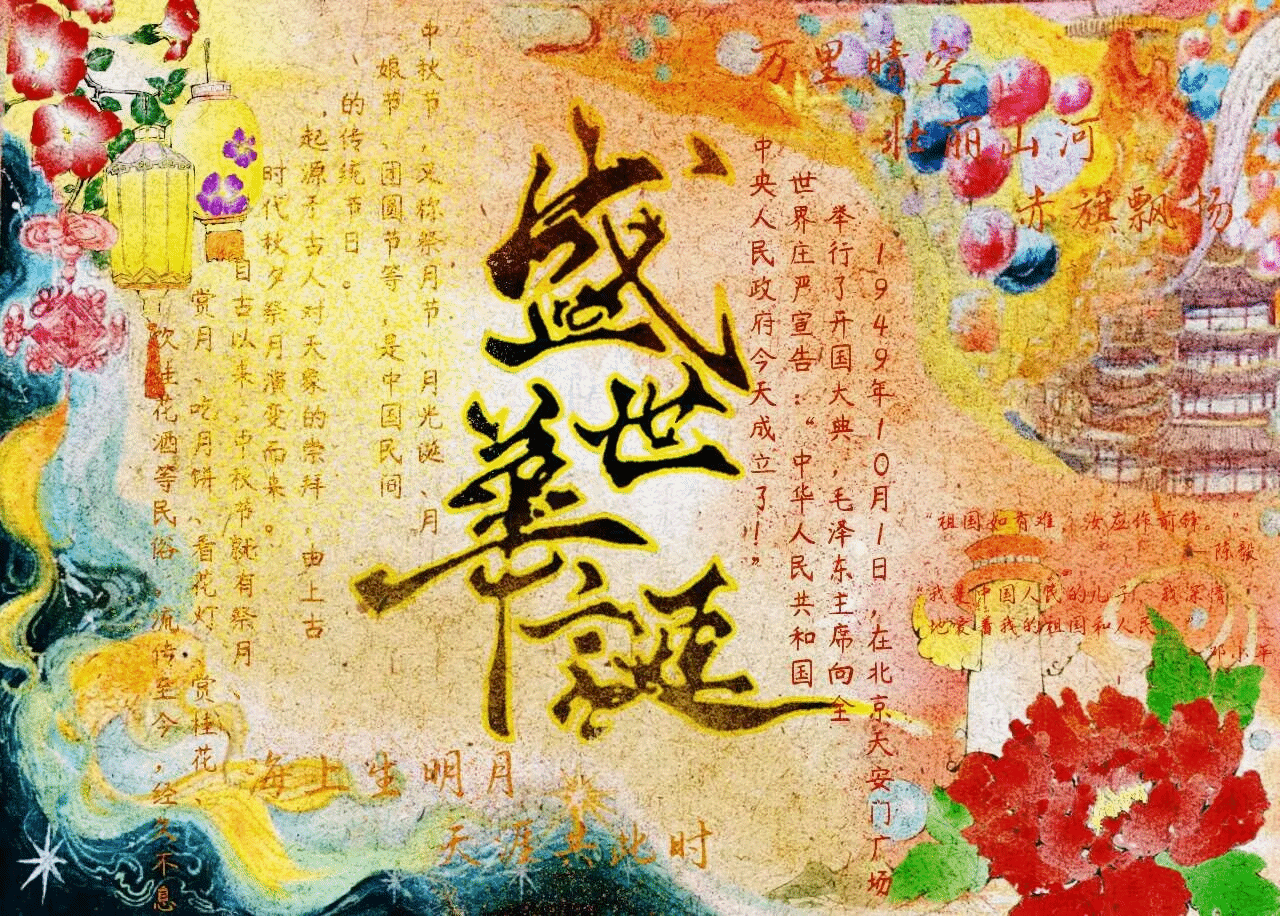 盛世華誕
万里晴空
壮丽山河
赤旗飘扬
1949年10月1日,在北京天安门广场
举行了开国大典,毛泽东主席向全
世界庄严宣告:“中华人民共和国
中央人民政府今天成立了!”
“祖国如有难,汝应作前锋。”
—陈毅
“我是中国人民的儿子,我深情
地爱着我的祖国和人民。”
邓小平
中秋节,又称祭月节、月光诞、月
娘节、团圆节等,是中国民间
的传统节日。
,起源于古人对天象的崇拜,由上古
时代秋夕祭月演变而来。
自古以来,中秋节就有祭月、
赏月、吃月饼、看花灯、赏桂花、
饮桂花酒等民俗,流传至今,经久不息
海上生明月
天涯共此时